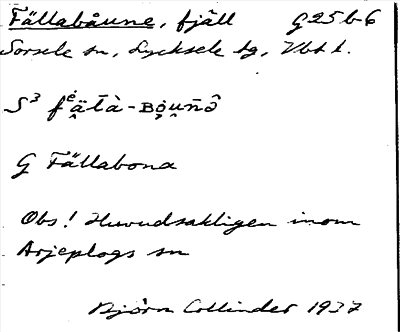 Fällabåune, fjäll G25b-6
Sorsele sn, Lycksele tg, Vbt l.
S³
G Fällabona
Obs! Huvudsakligen inom
Arjeplogs sn
Björn Collinder 1937